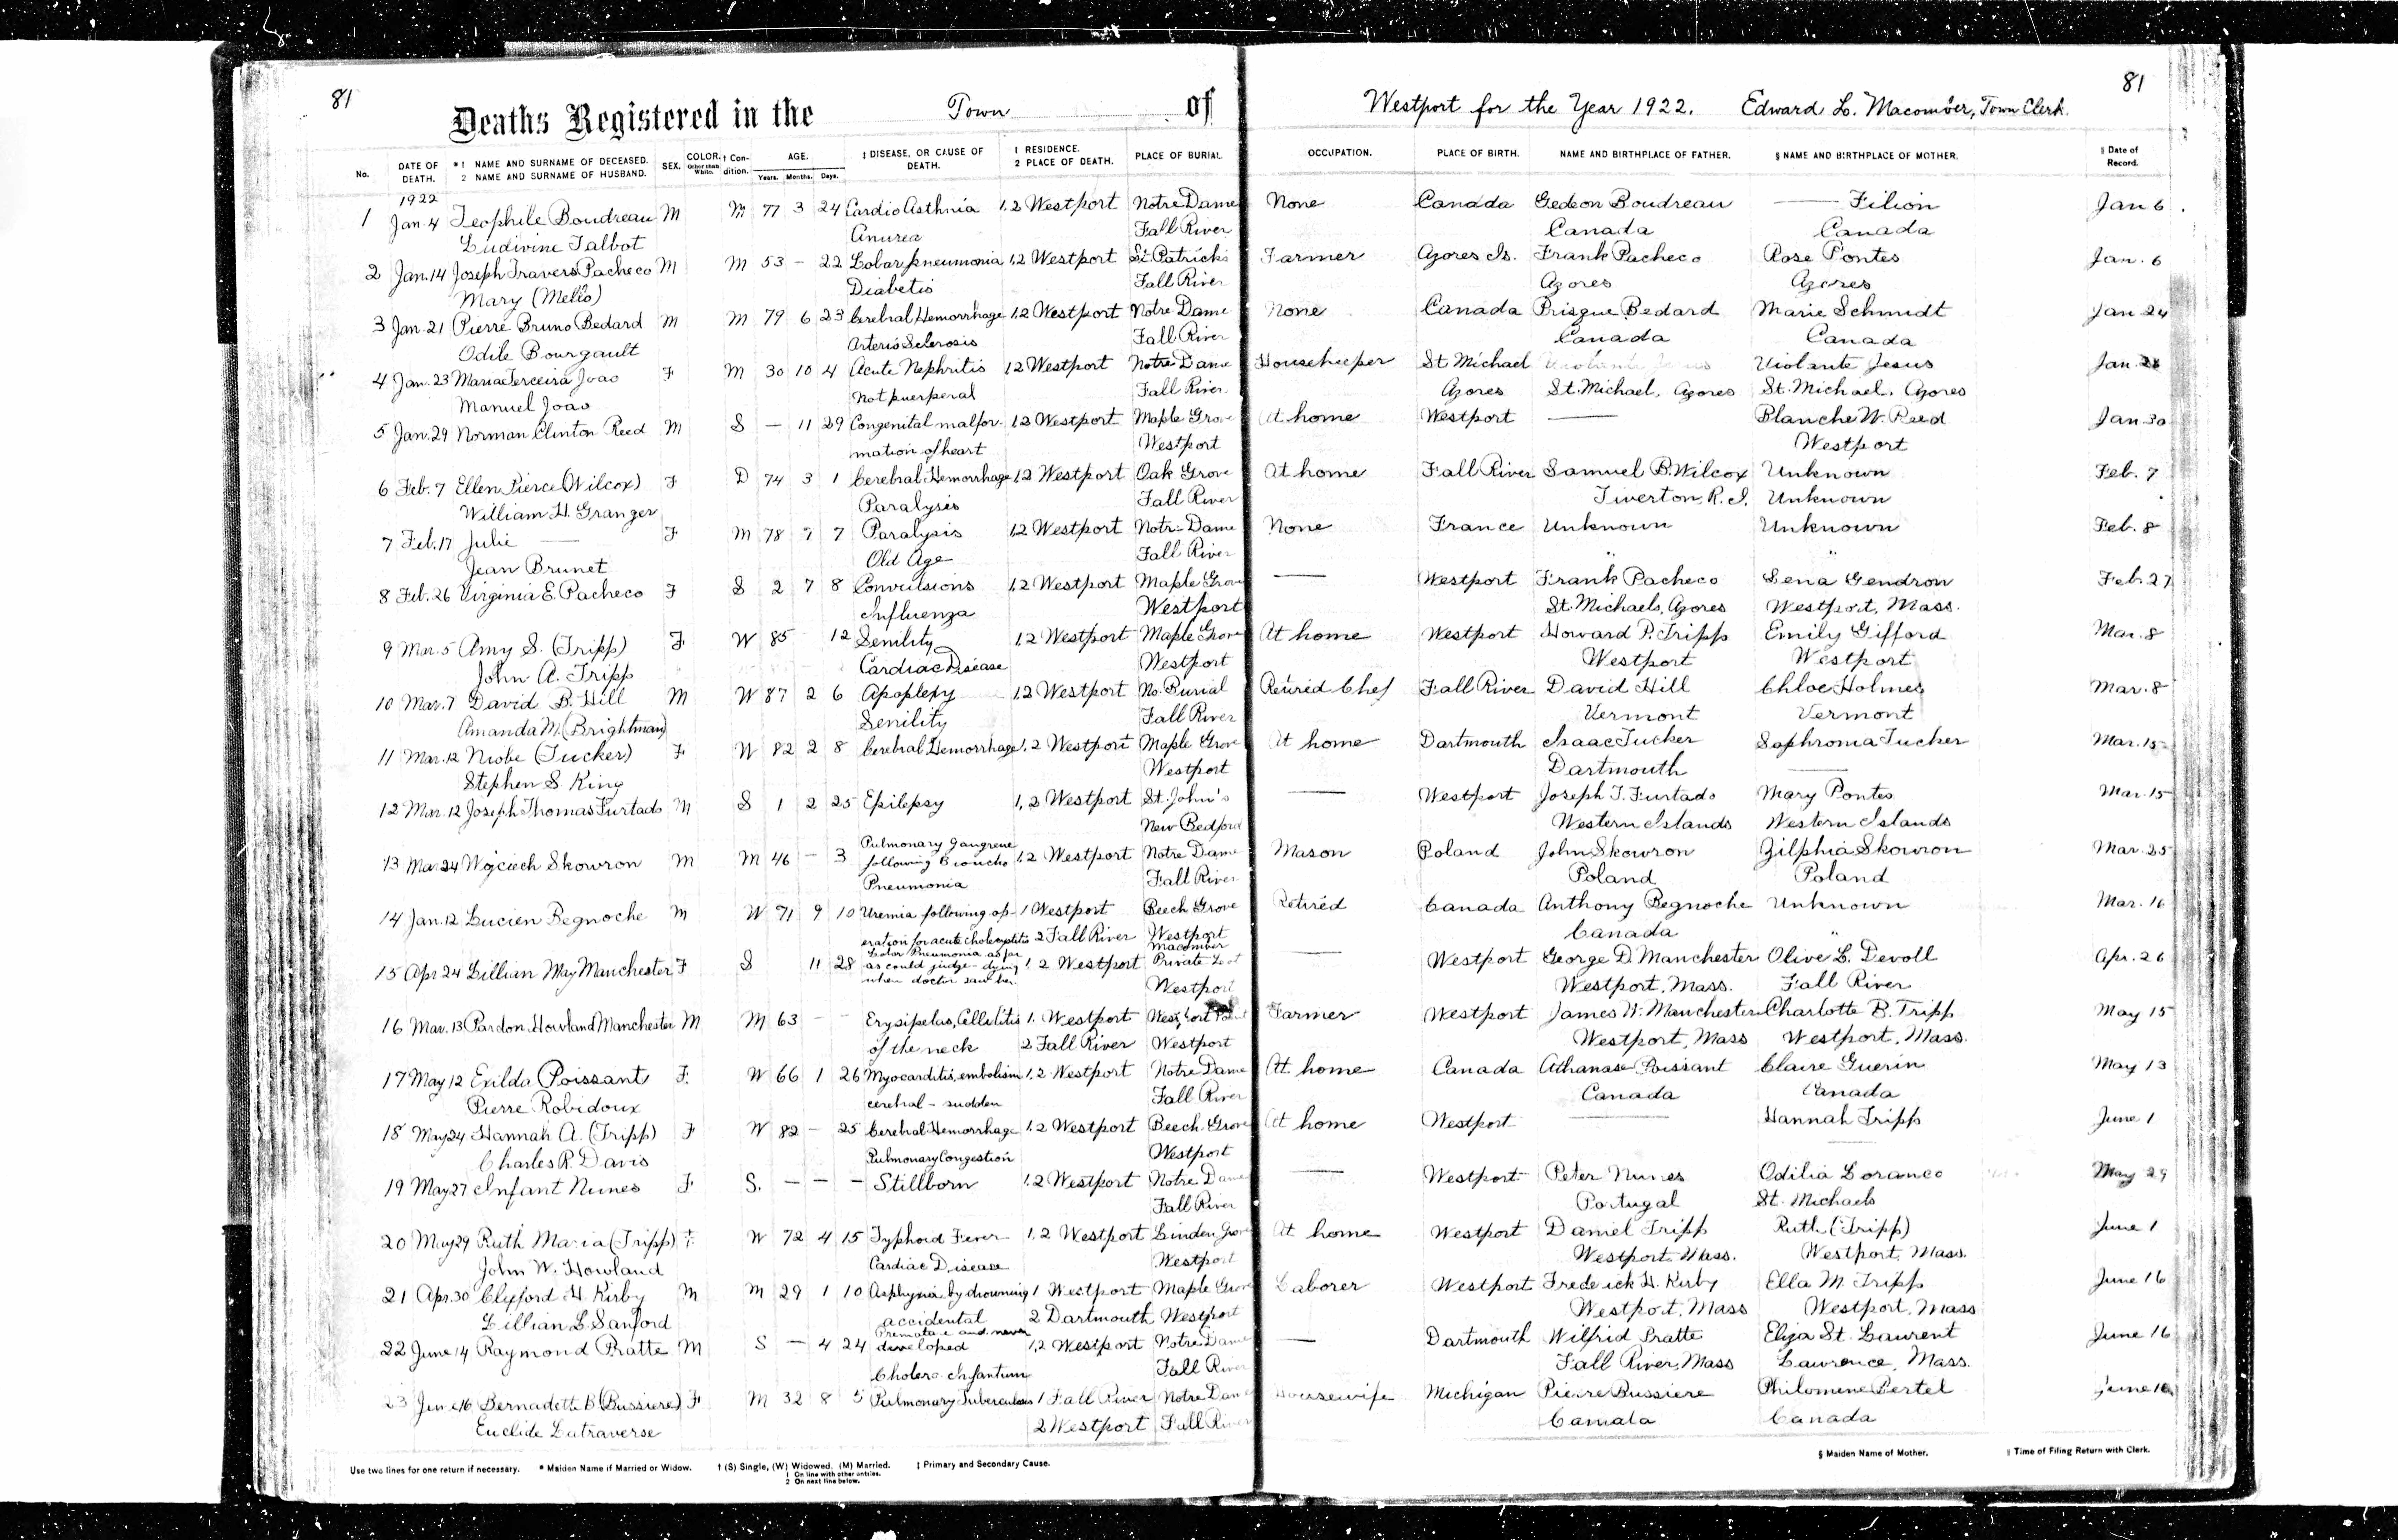 81
81
Deaths Registered in the Town of Westport for the Year 1922. Edward L. Macomber, Town Clerk.
No. DATE OF DEATH. *1 NAME AND SURNAME OF DECEASED. 2 NAME AND SURNAME OF HUSBAND. SEX. COLOR. Other than White. † Condition. AGE. Years. Months. Days. ‡ DISEASE, OR CAUSE OF DEATH. 1 RESIDENCE. 2 PLACE OF DEATH. PLACE OF BURIAL. OCCUPATION. PLACE OF BIRTH. NAME AND BIRTHPLACE OF FATHER. § NAME AND BIRTHPLACE OF MOTHER. § Date of Record.
1922
1 Jan. 4 Teophile Boudreau M M 77 3 24 Cardio Asthnia 1,2 Westport Notre Dame None Canada Gedeon Boudreau — Filion Jan 6
Ludivine Talbot Anurea Fall River Canada Canada
2 Jan. 14 Joseph Travers Pacheco M M 53 - 22 Lobar pneumonia 1,2 Westport St. Patricks Farmer Azores Is. Frank Pacheco Rose Pontes Jan. 6
Mary (Mello) Diabetis Fall River Azores Azores
3 Jan. 21 Pierre Bruno Bedard M M 79 6 23 Cerebral Hemorrhage 1,2 Westport Notre Dame None Canada Prisque Bedard Marie Schmidt Jan 24
Odile Bourgault Arterio Sclerosis Fall River Canada Canada
4 Jan. 23 Maria Terceira Joao F M 30 10 4 Acute Nephritis 1,2 Westport Notre Dame Housekeeper St Michael Violante Jesus Jan
Manuel Joao Not puerperal Fall River Azores St. Michael, Azores St. Michael, Azores
5 Jan. 29 Norman Clinton Reed M S — 11 29 Congenital malfor- 1,2 Westport Maple Grove At home Westport — Blanche W. Reed Jan 30
mation of heart Westport Westport
6 Feb. 7 Ellen Pierce (Wilcox) F D 74 3 1 Cerebral Hemorrhage 1,2 Westport Oak Grove At home Fall River Samuel B. Wilcox Unknown Feb. 7
William H. Granger Paralysis Fall River Tiverton, R.I. Unknown
7 Feb. 17 Julie — F M 78 7 7 Paralysis 1,2 Westport Notre Dame None France Unknown Unknown Feb. 8
Jean Brunet Old Age Fall River " "
8 Feb. 26 Virginia E. Pacheco F S 2 7 8 Convulsions 1,2 Westport Maple Grove — Westport Frank Pacheco Lena Gendron Feb. 27
Influenza Westport St. Michaels, Azores Westport, Mass.
9 Mar. 5 Amy S. (Tripp) F W 85 12 Senility 1,2 Westport Maple Grove At home Westport Howard P. Tripp Emily Gifford Mar. 8
John A. Tripp Cardiac Disease Westport Westport Westport
10 Mar. 7 David B. Hill M W 87 2 6 Apoplexy 1,2 Westport No. Burial Retired Chef Fall River David Hill Chloe Holmes Mar. 8
Amanda M. (Brightman) Senility Fall River Vermont Vermont
11 Mar. 12 Niobe (Tucker) F W 82 2 8 Cerebral Hemorrhage 1,2 Westport Maple Grove At home Dartmouth Isaac Tucker Sophronia Tucker Mar. 15
Stephen S. King Westport Dartmouth —
12 Mar. 12 Joseph Thomas Furtado M S 1 2 25 Epilepsy 1,2 Westport St. John's — Westport Joseph T. Furtado Mary Pontes Mar. 15
New Bedford Western Islands Western Islands
13 Mar 24 Wojciech Skowron M M 46 - 3 Pulmonary gangrene following Broncho 1,2 Westport Notre Dame Mason Poland John Skowron Zilphia Skowron Mar. 25
Pneumonia Fall River Poland Poland
14 Jan. 12 Lucien Begnoche M W 71 9 10 Uremia following op- 1 Westport Beech Grove Retired Canada Anthony Begnoche Unknown Mar. 16
eration for acute cholecystitis 2 Fall River Westport Canada "
15 Apr 24 Lillian May Manchester F S 11 28 Lobar Pneumonia as far as could judge - dying when doctor saw her. 1,2 Westport Macomber Private Lot — Westport George D. Manchester Olive L. Devoll Apr. 26
Westport Westport, Mass. Fall River
16 Mar. 13 Pardon Howland Manchester M M 63 - - Erysipelas, Cellulitis 1. Westport Westport Farmer Westport James W. Manchester Charlotte B. Tripp May 15
of the neck 2 Fall River Westport Westport, Mass Westport, Mass.
17 May 12 Exilda Poissant F. W 66 1 26 Myocarditis, embolism 1,2 Westport Notre Dame At home Canada Athanase Poissant Claire Guerin May 13
Pierre Robidoux cerebral - sudden Fall River Canada Canada
18 May 24 Hannah A. (Tripp) F W 82 - 25 Cerebral Hemorrhage 1,2 Westport Beech Grove At home Westport — Hannah Tripp June 1
Charles R. Davis Pulmonary Congestion Westport —
19 May 27 Infant Nunes F S. — — — Stillborn 1,2 Westport Notre Dame — Westport Peter Nunes Odilia Loranco May 29
Fall River Portugal St. Michaels
20 May 29 Ruth Maria (Tripp) F. W 72 4 15 Typhoid Fever 1,2 Westport Linden Grove At home Westport Daniel Tripp Ruth (Tripp) June 1
John W. Howland Cardiac Disease Westport Westport, Mass. Westport, Mass.
21 Apr. 30 Clifford H Kirby M M 29 1 10 Asphyxia by drowning 1 Westport Maple Grove Laborer Westport Frederick H. Kirby Ella M. Tripp June 16
Lillian L. Sanford accidental 2 Dartmouth Westport Westport, Mass Westport, Mass
22 June 14 Raymond Pratte M S — 4 24 Premature and never developed 1,2 Westport Notre Dame — Dartmouth Wilfrid Pratte Eliza St. Laurent June 16
Cholera Infantum Fall River Fall River, Mass Lawrence, Mass.
23 June 16 Bernadette B (Bussiere) F M 32 8 5 Pulmonary Tuberculosis 1 Fall River Notre Dame Housewife Michigan Pierre Bussiere Philomene Bertel June 16
Euclide Latraverse 2 Westport Fall River Canada Canada
Use two lines for one return if necessary. * Maiden Name if Married or Widow. † (S) Single, (W) Widowed, (M) Married. ‡ Primary and Secondary Cause. § Maiden Name of Mother. § Time of Filing Return with Clerk.
1 On line with other entries.
2 On next line below.